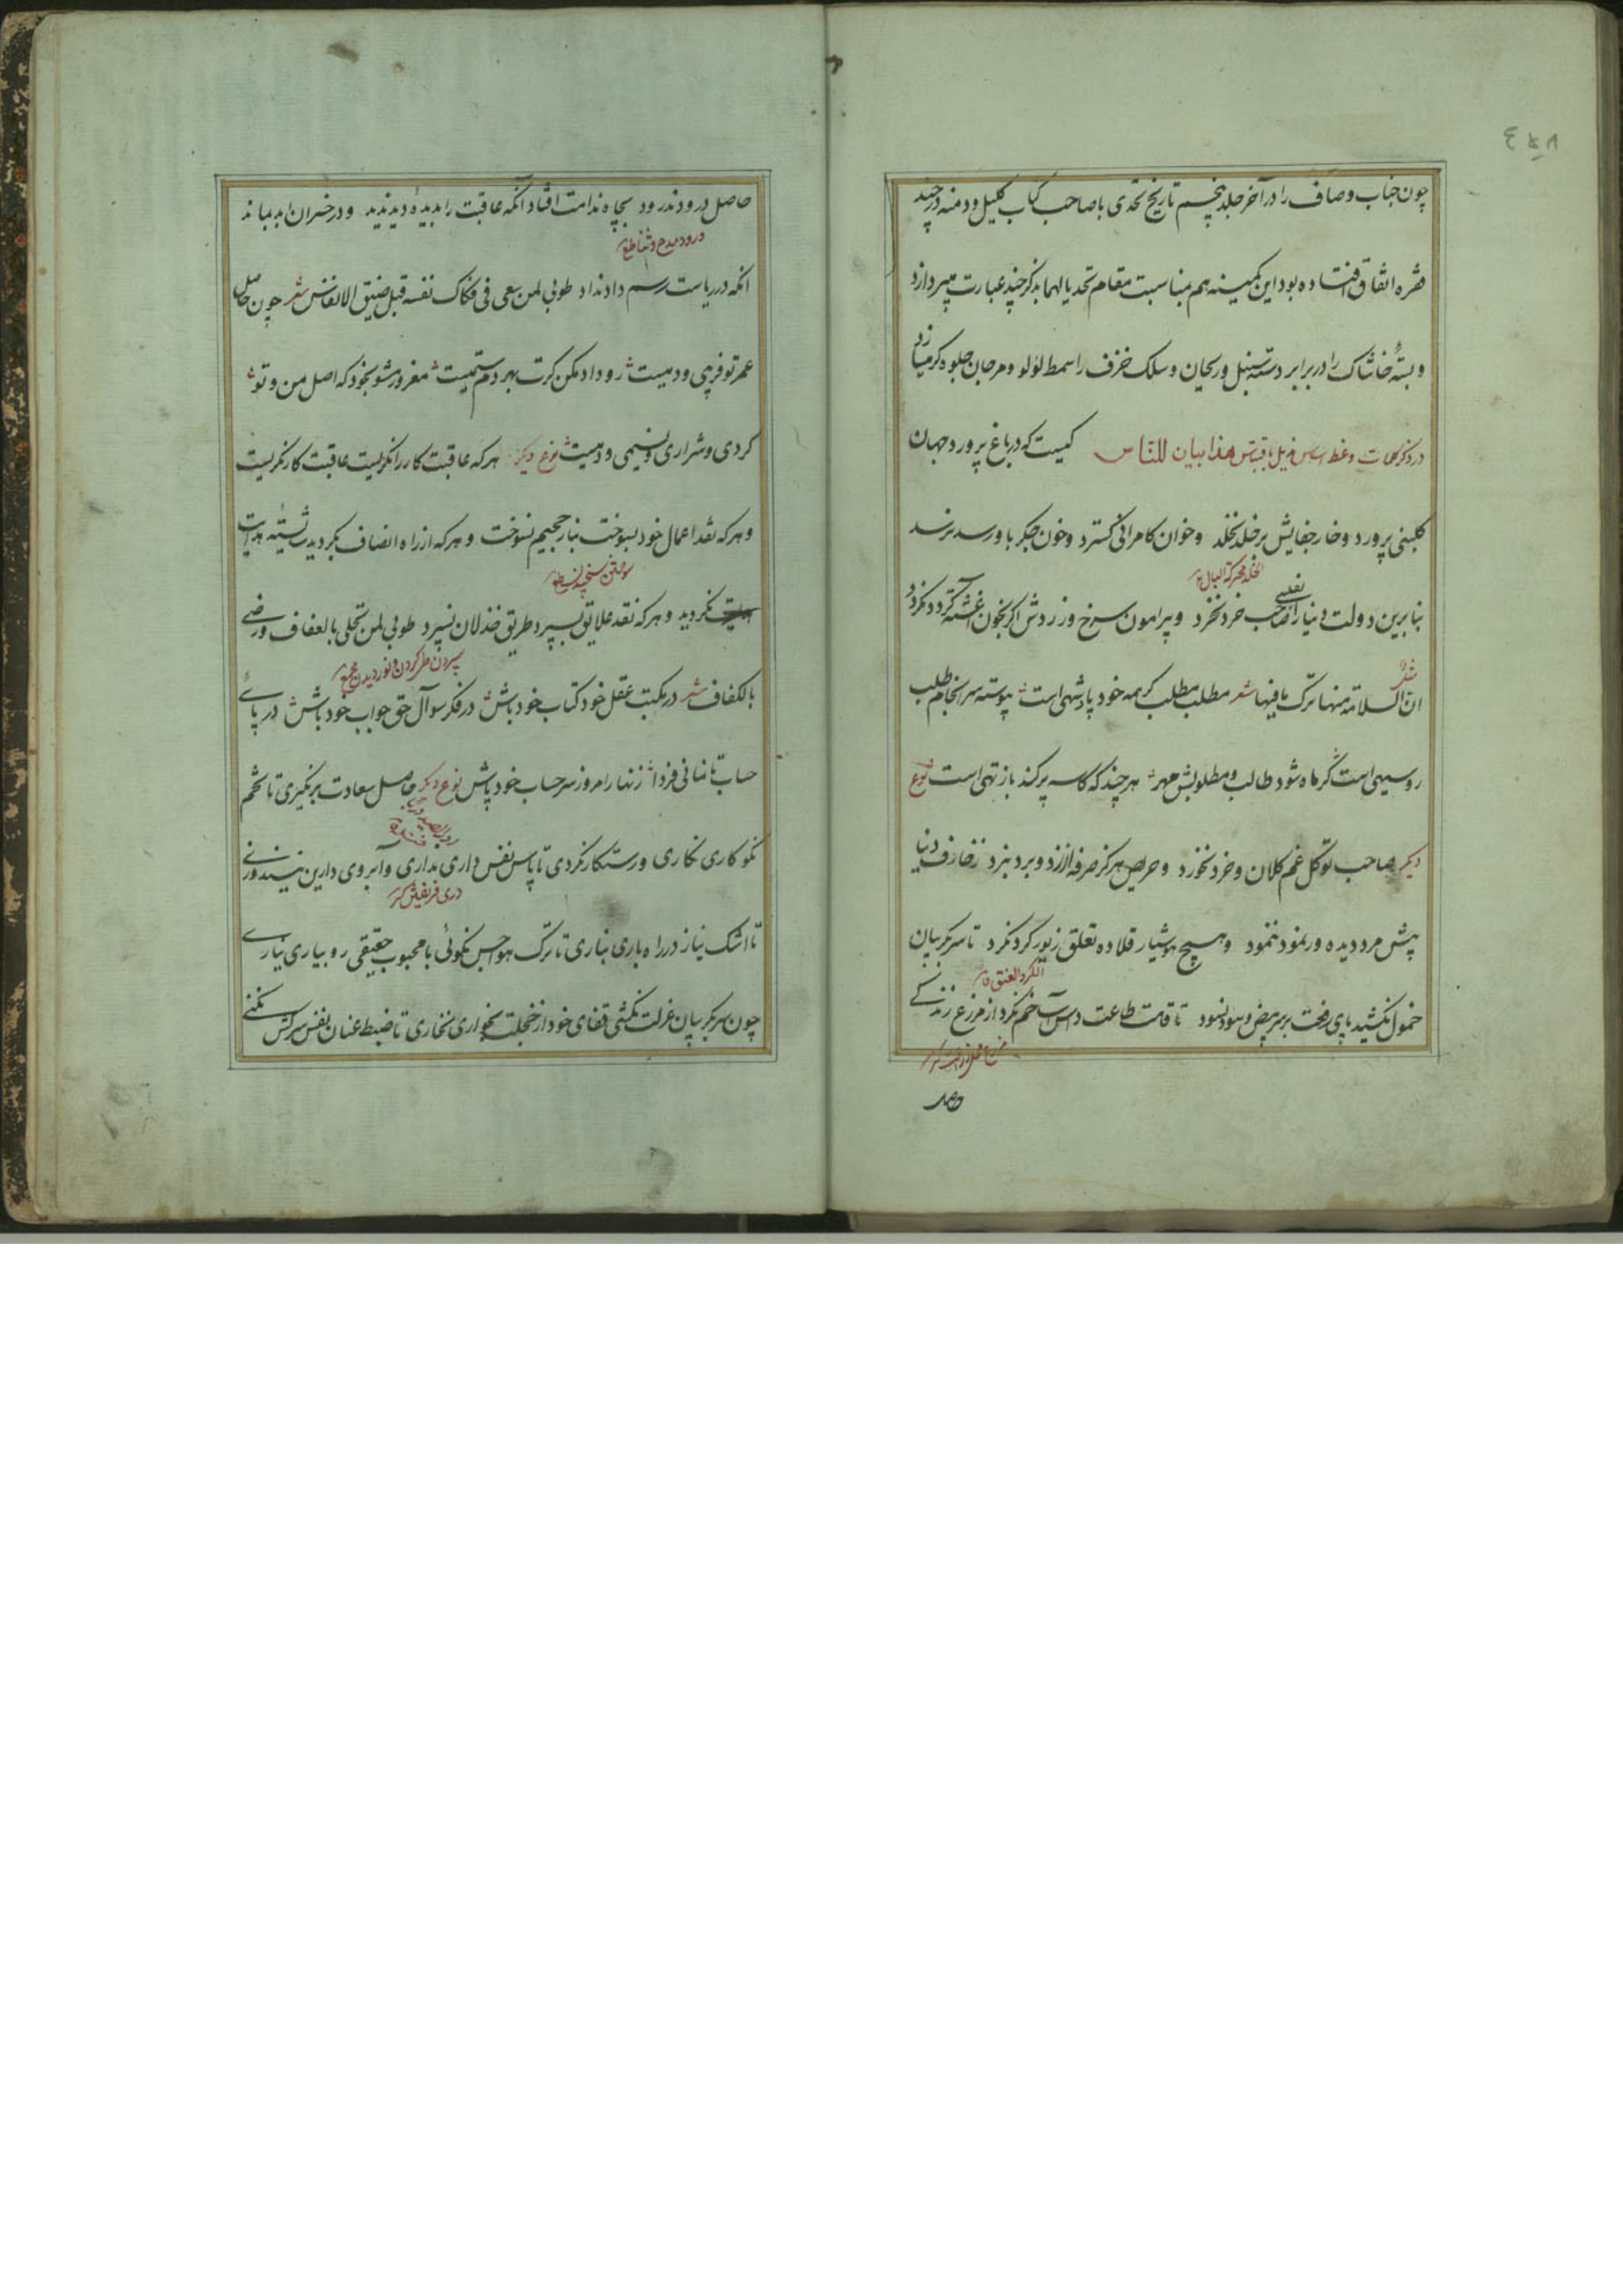 چون جناب وصاف را در آخر جلد پنجم تاریخ تحدی با صاحب کتاب کلیل و دمنه در چند
فقره اتفاق افتاده بود این کمینه هم بمناسبت مقام تحدیا لهما بذکر چند عبارت میپردازد
و بستهٔ خاشاک را در برابر دسته سنبل و ریحان و سلک خزف را سمط لؤلؤ و مرجان جلوه کر میسازد
در ذکر کلمات وعظ هذا بیان للناس کیست که در باغ پرورد جهان
کلبنی پرورد و خار جفایش بر خلد نخلد و خوان کامرانی کسترد و خون جکر باو رسد نرسد
بنابرین دولت دنیا را صاحب خرد نخرد و پیرامون سرخ و زردش اکر بخون آغشته کردد نکردد
ان السلامة منها ترک ما فیها شعر مطلب مطلب کر همه خود پادشهی است پیوسته سرانجام طلب
روسیهی است کر ماه شود طالب و مطلوبش مهر هر چند که کاسه پر کند باز تهی است نوع
دیکر صاحب توکل غم کلان و خرد نخورد و حریص هرکز صرفه از نرد و برد نبرد زخارف دنیا
پیش مرد دیده ور نمود ننمود و هیچ هوشیار قلاده تعلق زیور کرد نکرد تا سر بکریبان
الکرد العنق
خمول نکشید پای رفعت بر سر نسود تا قامت طاعت داس آسا خم نکرد از مزرع زندکی
حاصل درود ندرود بچاه ندامت افتاد آنکه عاقبت را بدیده دید ندید و در خسران ابد بماند
انکه در ریاست رسم داد نداد طوبی لمن سعی فی فکاک نفسه قبل ضیق الانفاس شعر چون حاصل
عمر تو فریبی و دمیست رو داد مکن کرت بهر دم ستمیست مغرور مشو بخود که اصل من و تو
کردی و شراری و نسیمی و دمیست نوع دیکر هر که عاقبت کار را نکریست عاقبت کار نکریست
و هر که نقد اعمال خود بسوخت بنار جحیم نسوخت و هر که از راه انصاف بکردید شایسته هدایت
نکردید و هر که نقد علایق بسپرد طریق خذلان نسپرد طوبی لمن تحلی بالعفاف و رضی
سپردن طی کردن و نوردیدن
بالکفاف شعر در مکتب عقل خود کتاب خود باش در فکر سوآل حق جواب خود باش در پای
حساب تا نمانی فردا زنهار امروز سر حساب خود باش نوع دیکر حاصل سعادت برنکیری تا تخم
نکوکاری نکاری و رستکار نکردی تا پاس نفس داری نداری و آبروی دارین نیندوزی
تا اشک نیاز در راه باری نباری تا ترک هواجس نکوئی با محبوب حقیقی رو بیاری نیاری
چون سر بکریبان عزلت نکشی قفای خود از خجلت بخواری نخاری تا ضبط عنان نفس سرکش نکنی